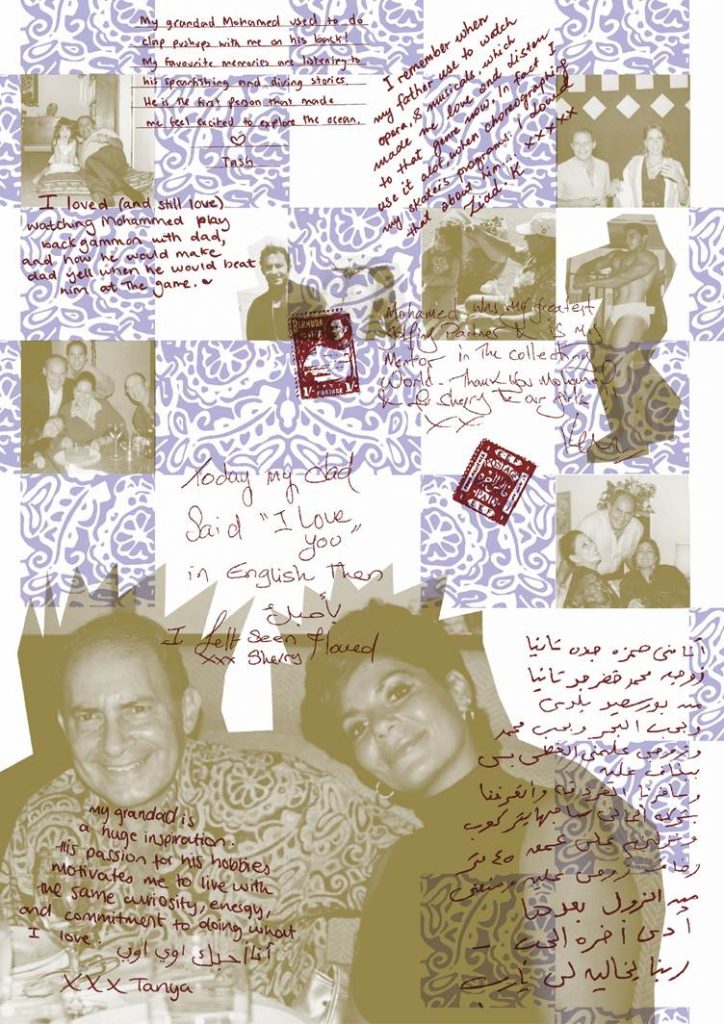 My grandad Mohamed used to do
clap pushups with me on his back!
My favourite memories are listening to
his spearfishing and diving stories.
He is the first person that made
me feel excited to explore the ocean.
♡
Tash
I remember when
my father use to watch
opera, & musicals, which
made me love and listen
to that genre now. In fact I
use it alot when choreographing
my skaters programs. I loved
that about him.
xxxxx
Ziad. K
I loved (and still love)
watching Mohammed play
backgammon with dad,
and how he would make
dad yell when he would beat
him at the game.
BERMUDA
POSTAGE
Mohamed was my greatest
Partner & is my
Mentor in The collecting
World - Thank You Mohamed
& Sherry & our girls
XX
POSTAGE
PAID
Today my dad
Said "I love
you"
in English Then
بأحبك
I felt seen & loved
xxx Sherry
my grandad is
a huge inspiration.
His passion for his hobbies
motivates me to live with
the same curiosity, energy,
and commitment to doing what
I love.
أنا أحبك اوي اوي
XXX Tanya
جده تانيا
زوجة محمد
من بورسعيد بلدي
ويحب البحر ويحب محمد
وزوجي علمني الغطس بس
بيخاف عليه
على عمق ٤٠ متر
من النزول بعدها
أدي أخرة الحب
ربنا يخاليه لي يارب